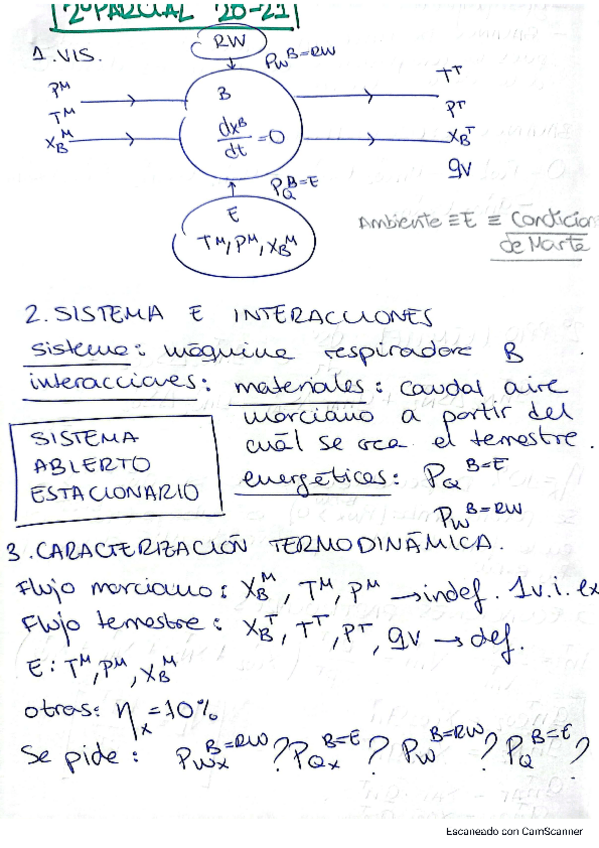 2º PARCIAL 20-21
1. VIS.
RW
P_W^B=RW
P^M
T^M
X_B^M
B
dx^B/dt = 0
T^T
P^T
X_B^T
qv
P_Q^B=E
E
T^M, P^M, X_B^M
Ambiente ≡ E ≡ Condicion
de Marte
2. SISTEMA E INTERACCIONES
sistema: máquina respiradora B
interacciones: materiales: caudal aire
marciano a partir del
cuál se crea el terrestre.
SISTEMA
ABIERTO
ESTACIONARIO
energéticas: P_Q^B=E
P_W^B=RW
3. CARACTERIZACIÓN TERMODINÁMICA.
Flujo marciano: X_B^M, T^M, P^M → indef. 1 v.i. ex
Flujo terrestre: X_B^T, T^T, P^T, qv → def.
E: T^M, P^M, X_B^M
otras: η_x = 10%
Se pide: P_Wx^B=RW? P_Qx^B=E? P_W^B=RW? P_Q^B=E?
Escaneado con CamScanner